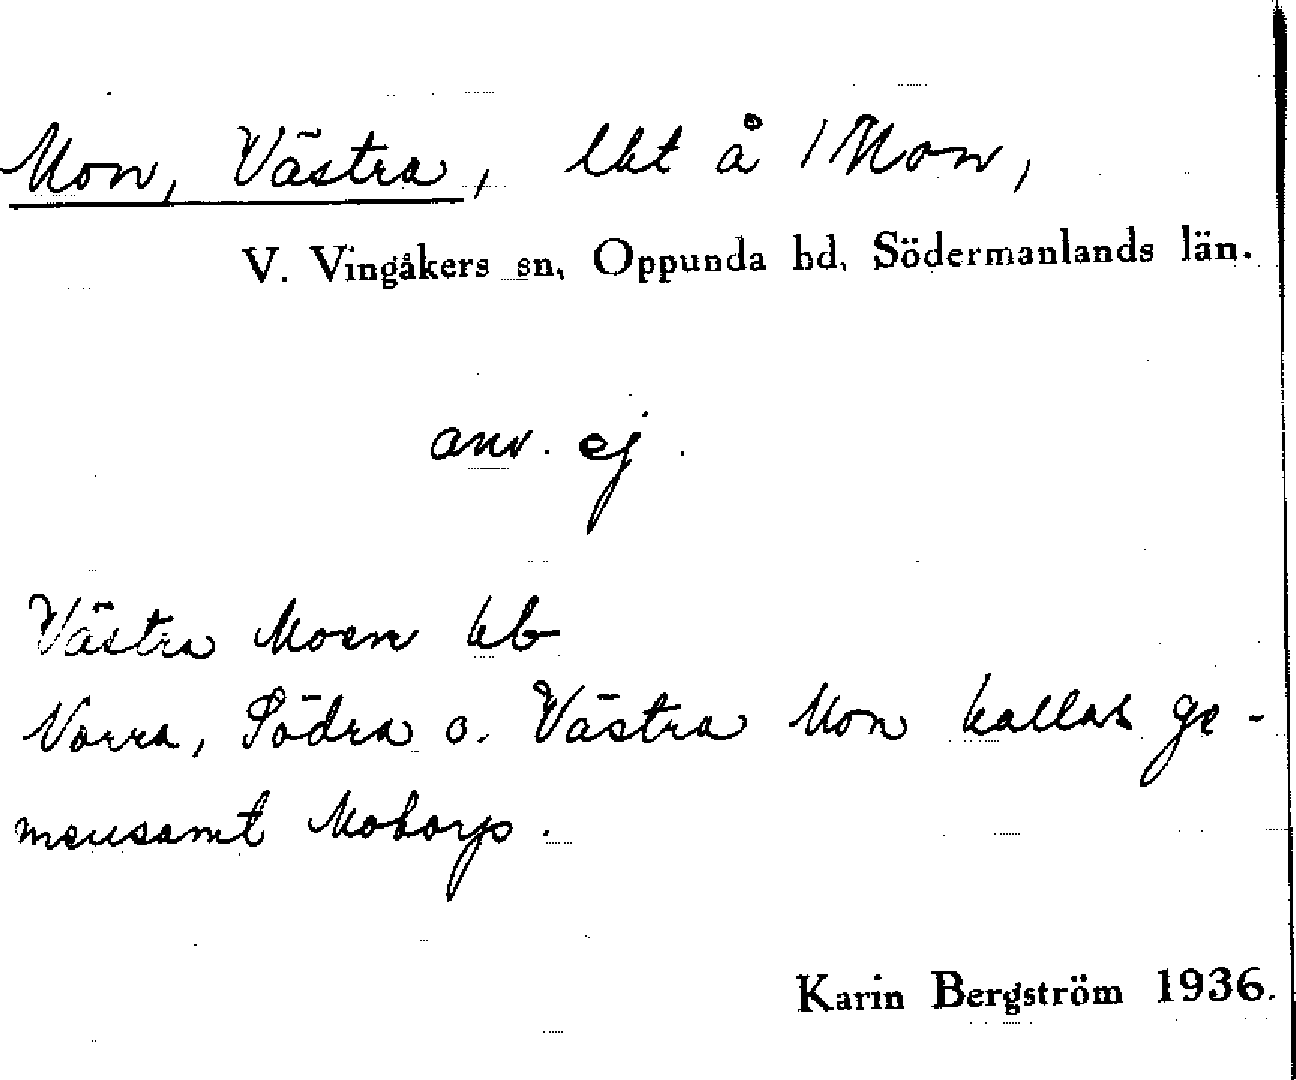 Mon, Västra, lht å 1 Mon,
V. Vingåkers sn, Oppunda hd, Södermanlands län.
anv. ej.
Västra Moen kb
Norra, Södra o. Västra Mon kallas ge-
mensamt Motorp.
Karin Bergström 1936.